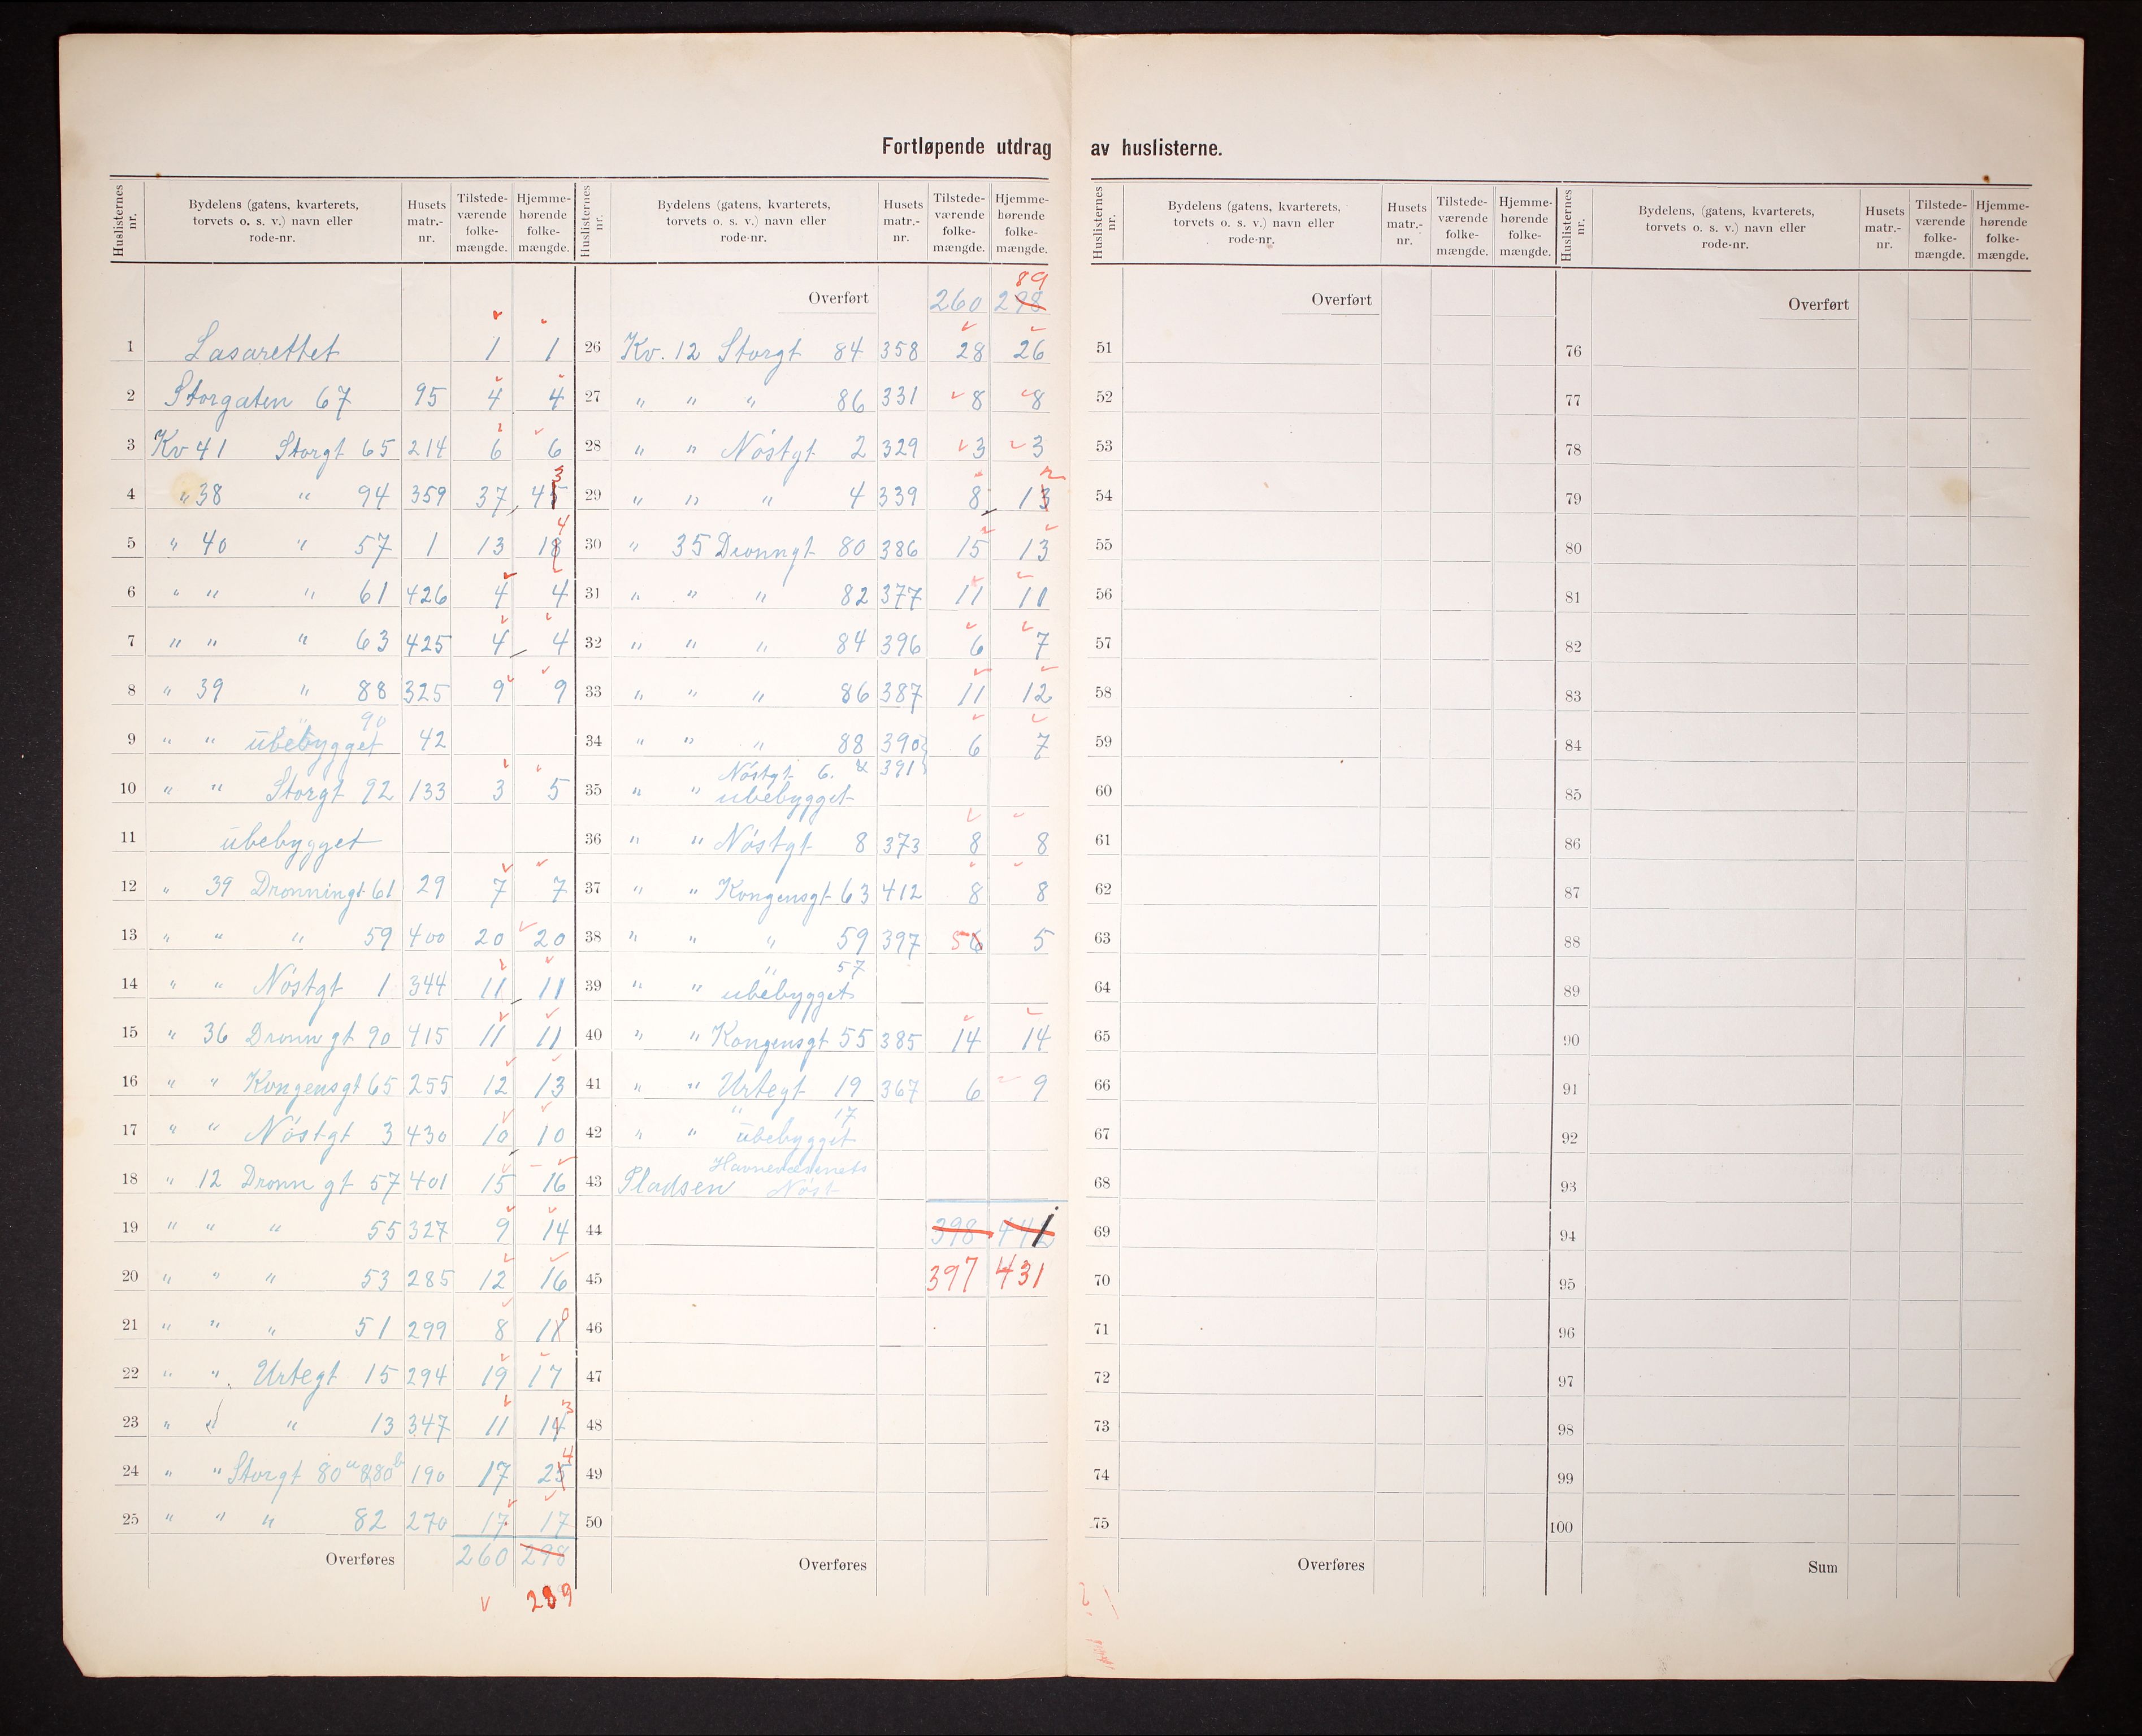 Fortløpende utdrag av huslisterne.
Huslisternes nr. | Bydelens (gatens, kvarterets, torvets o. s. v.) navn eller rode-nr. | Husets matr.-nr. | Tilstede-værende folke-mængde. | Hjemme-hørende folke-mængde.
1 Lasarettet 1 1
2 Storgaten 67 95 4 4
3 Kv 41 Storgt 65 214 6 6
4 " 38 " 94 359 37 45 3
5 " 40 " 57 1 13 18 4
6 " " " 61 426 4 4
7 " " " 63 425 4 4
8 " 39 " 88 325 9 9
9 " " " 90 ubebygget 42
10 " " Storgt 92 133 3 5
11 ubebygget
12 " 39 Dronningt 61 29 7 7
13 " " " 59 400 20 20
14 " " Nöstgt 1 344 11 11
15 " 36 Dronn gt 90 415 11 11
16 " " Kongensgt 65 255 12 13
17 " " Nöstgt 3 430 10 10
18 " 12 Dronn gt 57 401 15 16
19 " " " 55 327 9 14
20 " " " 53 285 12 16
21 " " " 51 299 8 11 0
22 " " Urtegt 15 294 19 17
23 " " " 13 347 11 14 3
24 " " Storgt 80a & 80b 190 17 25 4
25 " " " 82 270 17 17
Overføres 260 298
289
Huslisternes nr. | Bydelens (gatens, kvarterets, torvets o. s. v.) navn eller rode-nr. | Husets matr.-nr. | Tilstede-værende folke-mængde. | Hjemme-hørende folke-mængde.
89
Overført 260 298
26 Kv. 12 Storgt 84 358 28 26
27 " " " 86 331 8 8
28 " " Nöstgt 2 329 3 3
29 " " " 4 339 8 13 2
30 " 35 Dronngt 80 386 15 13
31 " " " 82 377 11 10
32 " " " 84 396 6 7
33 " " " 86 387 11 12
34 " " " 88 390 & 391 6 7
35 " " Nöstgt 6. ubebygget
36 " " Nöstgt 8 373 8 8
37 " " Kongensgt 63 412 8 8
38 " " " 59 397 5 6 5
39 " " " 57 ubebygget
40 " " Kongensgt 55 385 14 14
41 " " Urtegt 19 367 6 9
42 " " " 17 ubebygget
43 Pladsen Havnevæsenets Nöst
44 398 442
45 397 431
46
47
48
49
50
Overføres
Huslisternes nr. | Bydelens (gatens, kvarterets, torvets o. s. v.) navn eller rode-nr. | Husets matr.-nr. | Tilstede-værende folke-mængde. | Hjemme-hørende folke-mængde.
Overført
51
52
53
54
55
56
57
58
59
60
61
62
63
64
65
66
67
68
69
70
71
72
73
74
75
Overføres
Huslisternes nr. | Bydelens, (gatens, kvarterets, torvets o. s. v.) navn eller rode-nr. | Husets matr.-nr. | Tilstede-værende folke-mængde. | Hjemme-hørende folke-mængde.
Overført
76
77
78
79
80
81
82
83
84
85
86
87
88
89
90
91
92
93
94
95
96
97
98
99
100
Sum